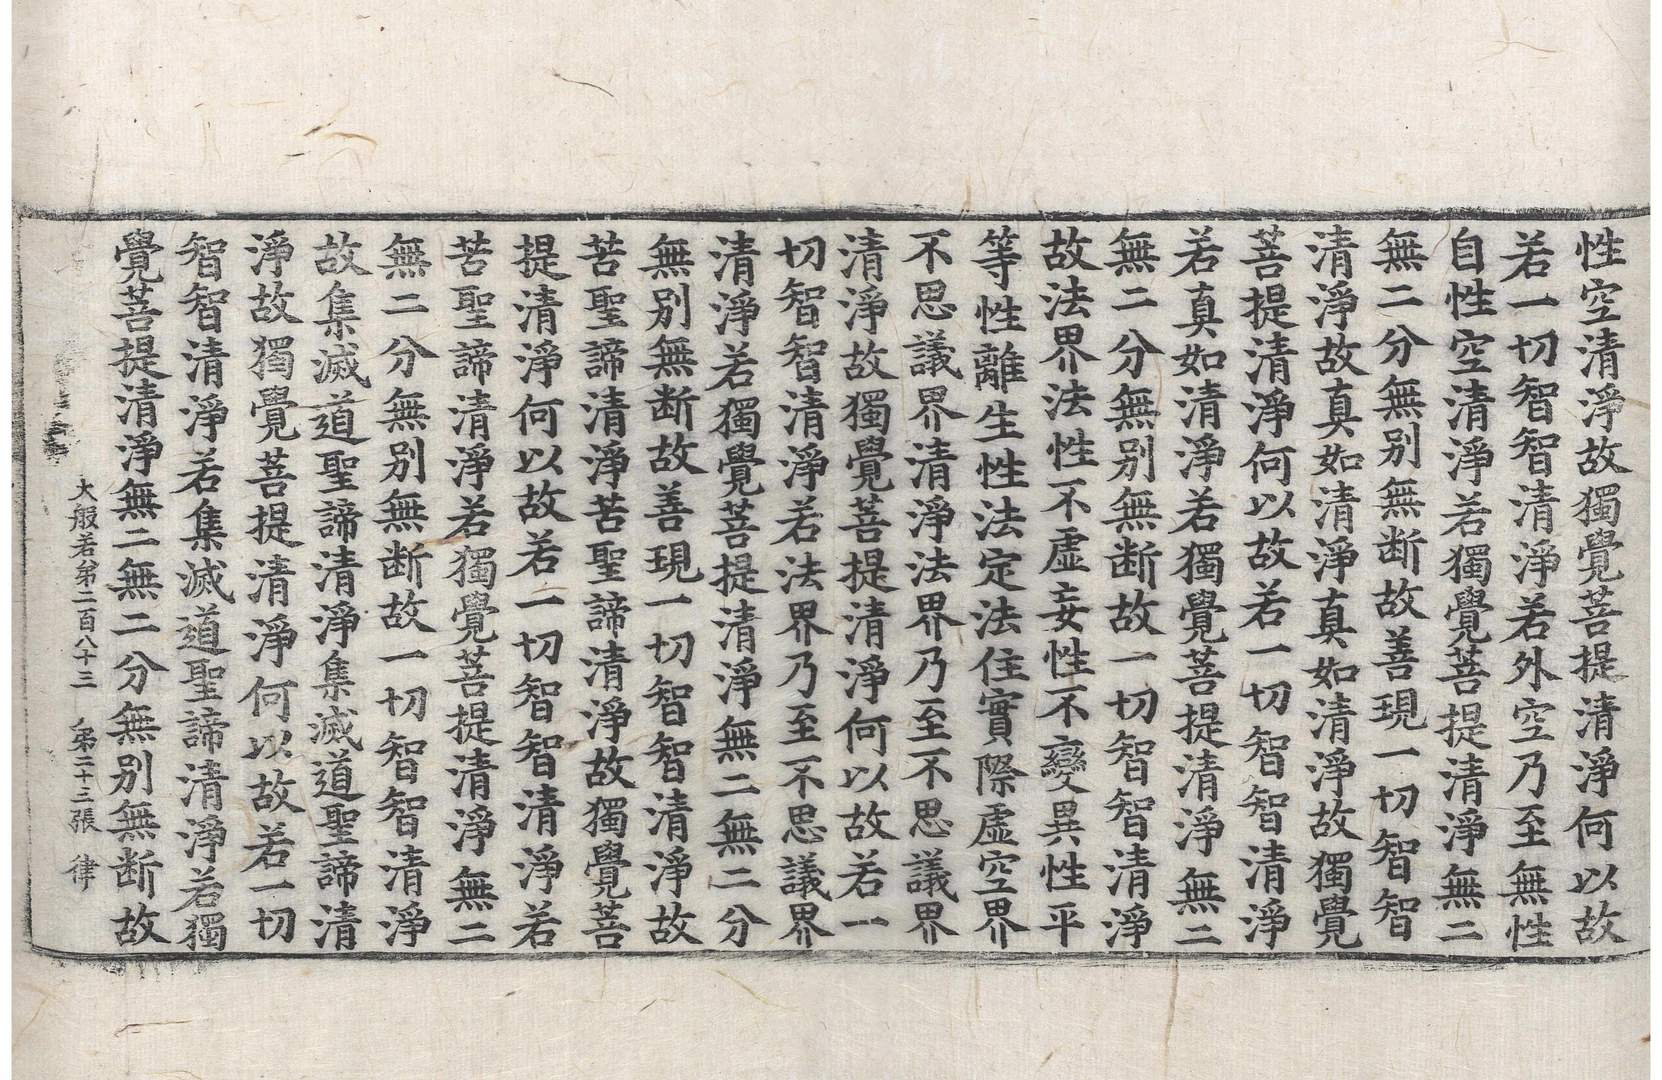 性空清淨故獨覺菩提清淨何以故
若一切智智清淨若外空乃至無性
自性空清淨若獨覺菩提清淨無二
無二分無別無断故善現一切智智
清淨故真如清淨真如清淨故獨覺
菩提清淨何以故若一切智智清淨
若真如清淨若獨覺菩提清淨無二
無二分無別無断故一切智智清淨
故法界法性不虛妄性不變異性平
等性離生性法定法住實際虛空界
不思議界清淨法界乃至不思議界
清淨故獨覺菩提清淨何以故若一
切智智清淨若法界乃至不思議界
清淨若獨覺菩提清淨無二無二分
無別無断故善現一切智智清淨故
苦聖諦清淨苦聖諦清淨故獨覺菩
提清淨何以故若一切智智清淨若
苦聖諦清淨若獨覺菩提清淨無二
無二分無別無断故一切智智清淨
故集滅道聖諦清淨集滅道聖諦清
淨故獨覺菩提清淨何以故若一切
智智清淨若集滅道聖諦清淨若獨
覺菩提清淨無二無二分無別無断故
大般若弟二百八十三 弟二十三張 律